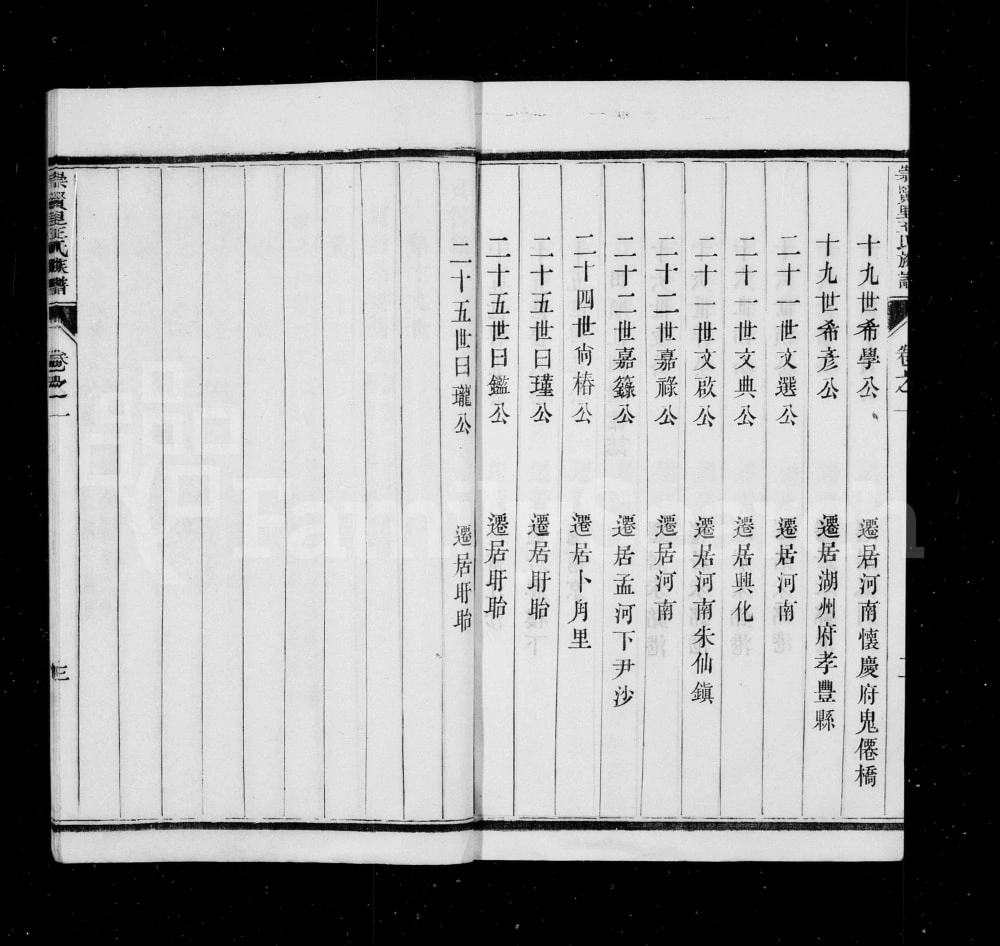 崇賢里王氏族譜
卷之一
二
十九世希學公 遷居河南懷慶府鬼僊橋
十九世希彥公 遷居湖州府孝豐縣
二十一世文選公 遷居河南
二十一世文典公 遷居興化
二十一世文啟公 遷居河南朱仙鎮
二十二世嘉祿公 遷居河南
二十二世嘉籙公 遷居孟河下尹沙
二十四世尙椿公 遷居卜⾓里
二十五世曰瑾公 遷居盱眙
二十五世曰鑑公 遷居盱眙
二十五世曰瓏公 遷居盱眙
崇賢里王氏族譜
卷之一
三
FamilySearch